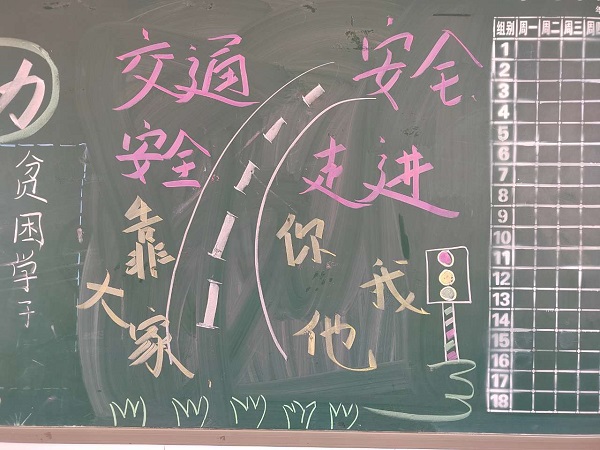 力
贫困学子
交通
安全
靠
大家
安全
走进
你
我
他
年
组别 周一 周二 周三 周四
1
2
3
4
5
6
7
8
9
10
11
12
13
14
15
16
17
18